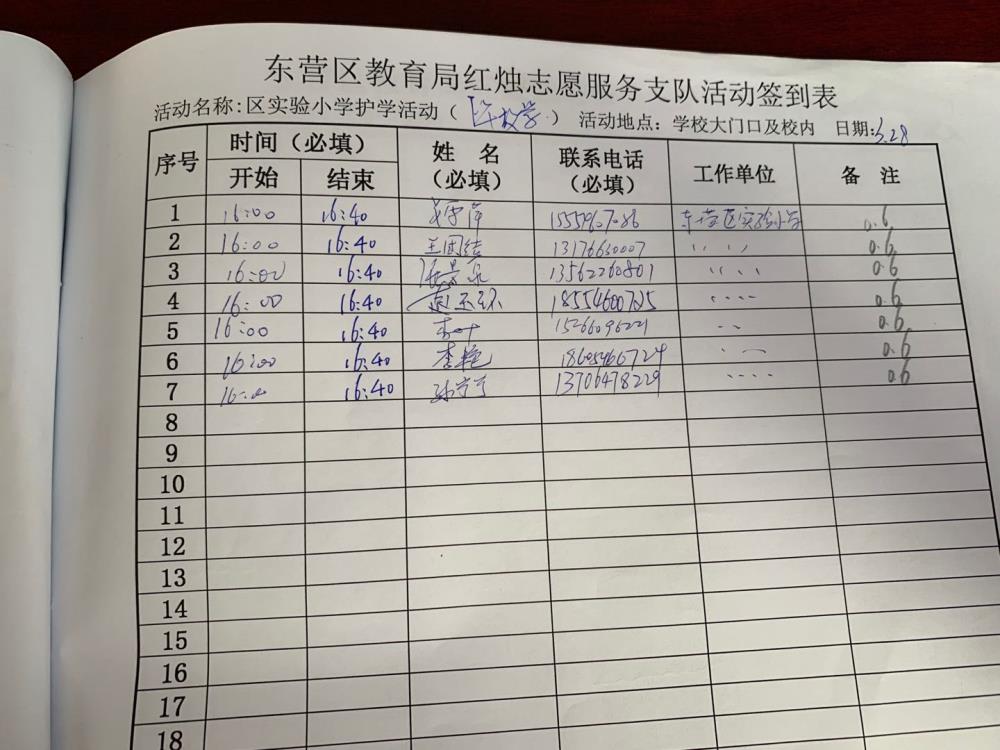 东营区教育局红烛志愿服务支队活动签到表
活动名称:区实验小学护学活动（ 放学 ） 活动地点: 学校大门口及校内 日期:3.28
序号 时间（必填） 姓 名（必填） 联系电话（必填） 工作单位 备 注
开始 结束
1 16:00 16:40 东营区实验小学 0.6
2 16:00 16:40 王团结 13176630007 〃 〃 0.6
3 16:00 16:40 13562260801 〃 〃 0.6
4 16:00 16:40 18554600725 〃 〃 0.6
5 16:00 16:40 15266096221 〃 0.6
6 16:00 16:40 李艳 18605466724 〃 0.6
7 16:00 16:40 孙宁宁 13706478229 〃 〃 0.6
8
9
10
11
12
13
14
15
16
17
18